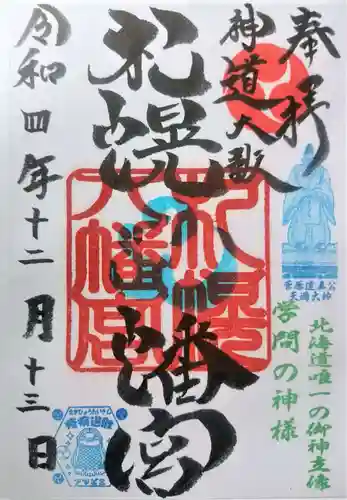 奉拝
神道大教
札幌八幡宮
札幌
八幡宮
菅原道真公
天満大神
学問の神様
北海道唯一の御神立像
令和四年十二月十三日